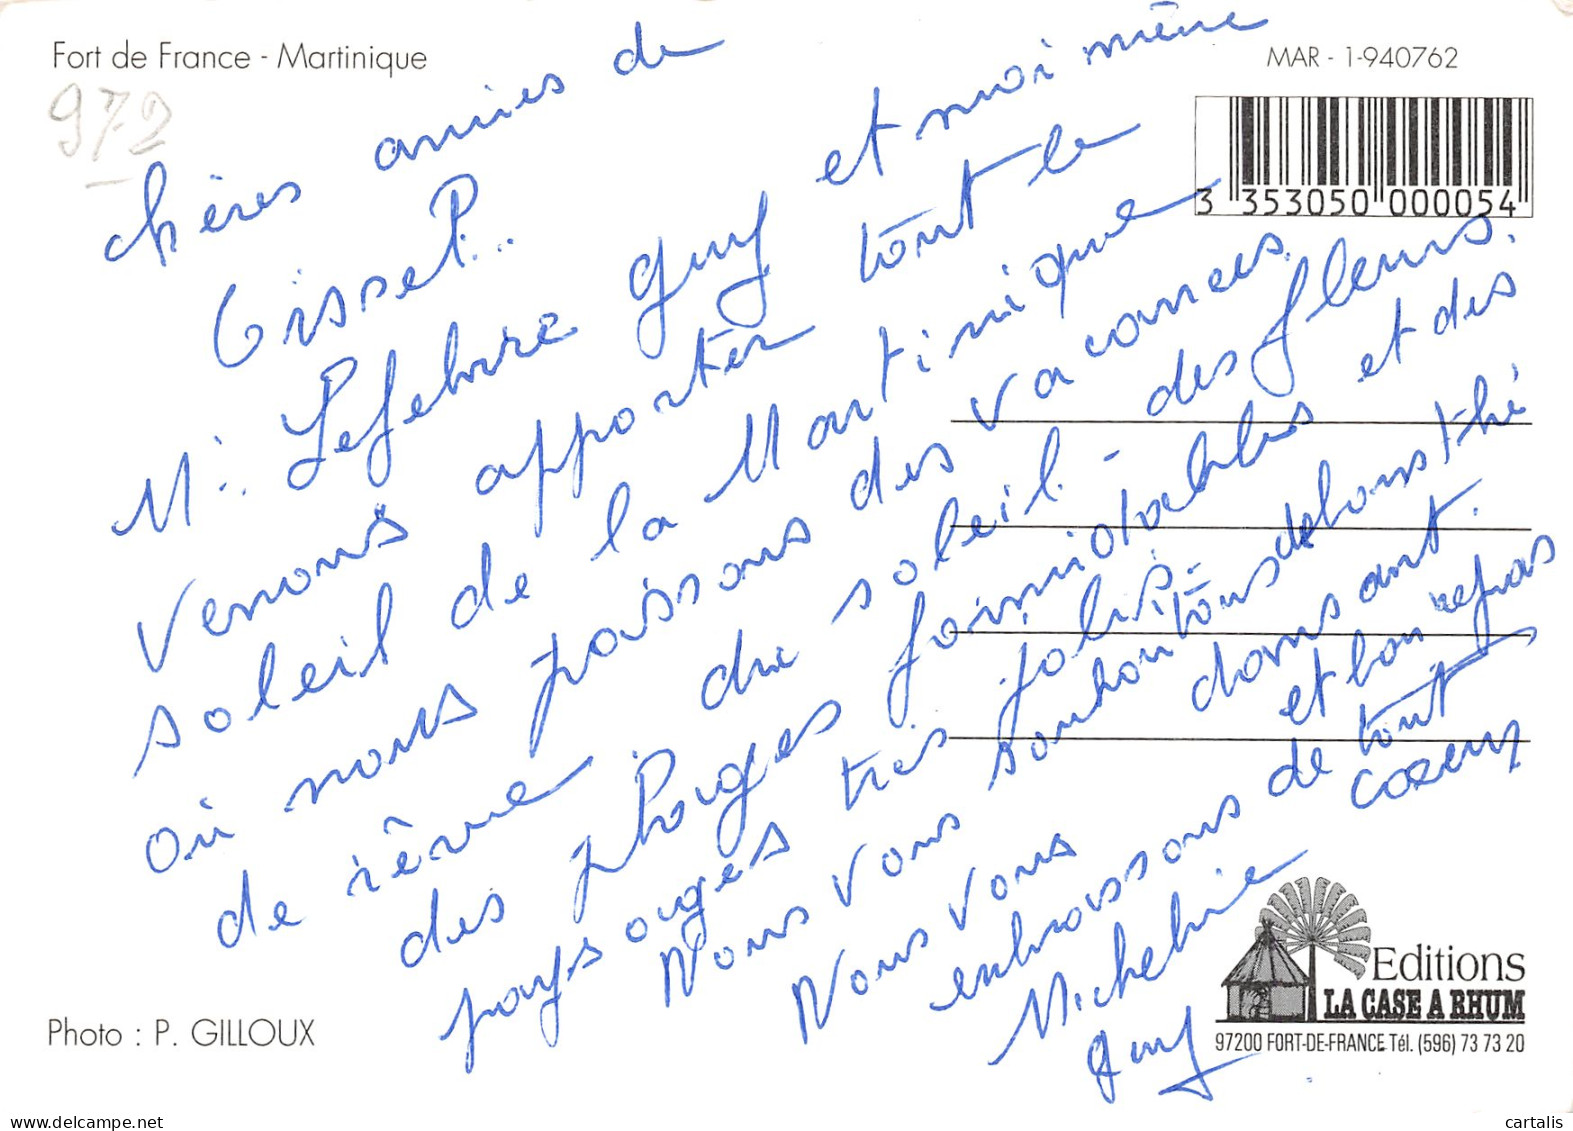 Fort de France - Martinique
MAR - 1-940762
972
3 353050 000054
Chères amies de
Gisset..
Mr. Lefebvre Guy et moi même
venons apporter tout le
soleil de la Martinique
où nous passons des vacances
de rêve du soleil - des fleurs.
des plages formidables et des
paysages très jolis.
Nous vous souhaitons de bons thé
dansant.
Nous vous et bon repas
embrassons de tout
coeur
Micheline
Guy
Photo : P. GILLOUX
Editions
LA CASE A RHUM
97200 FORT-DE-FRANCE Tél. (596) 73 73 20
cartalis